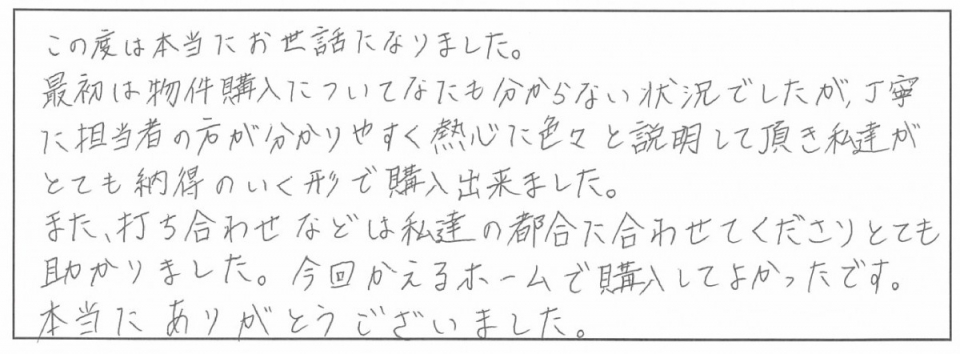 この度は本当にお世話になりました。
最初は物件購入についてなにも分からない状況でしたが、丁寧
に担当者の方が分かりやすく熱心に色々と説明して頂き私達が
とても納得のいく形で購入出来ました。
また、打ち合わせなどは私達の都合に合わせてくださりとても
助かりました。今回かえるホームで購入してよかったです。
本当にありがとうございました。